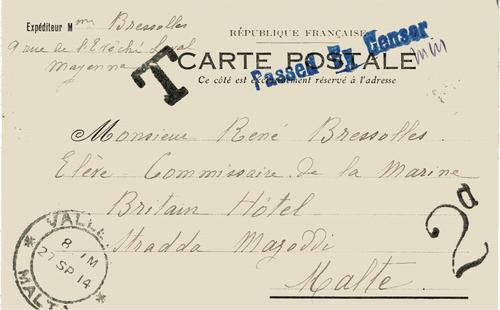 Expéditeur Mme Bressolles
9 rue de l'Evêché Laval
Mayenne
RÉPUBLIQUE FRANÇAISE
T
CARTE POSTALE
Passed By Censor
Ce côté est exclusivement réservé à l'adresse
Monsieur René Bressolles.
Elève Commissaire de la Marine
Britain Hôtel
Stradda Mazoddi
Malte.
2d
VALLE
8 M
27 SP 14
MALTA